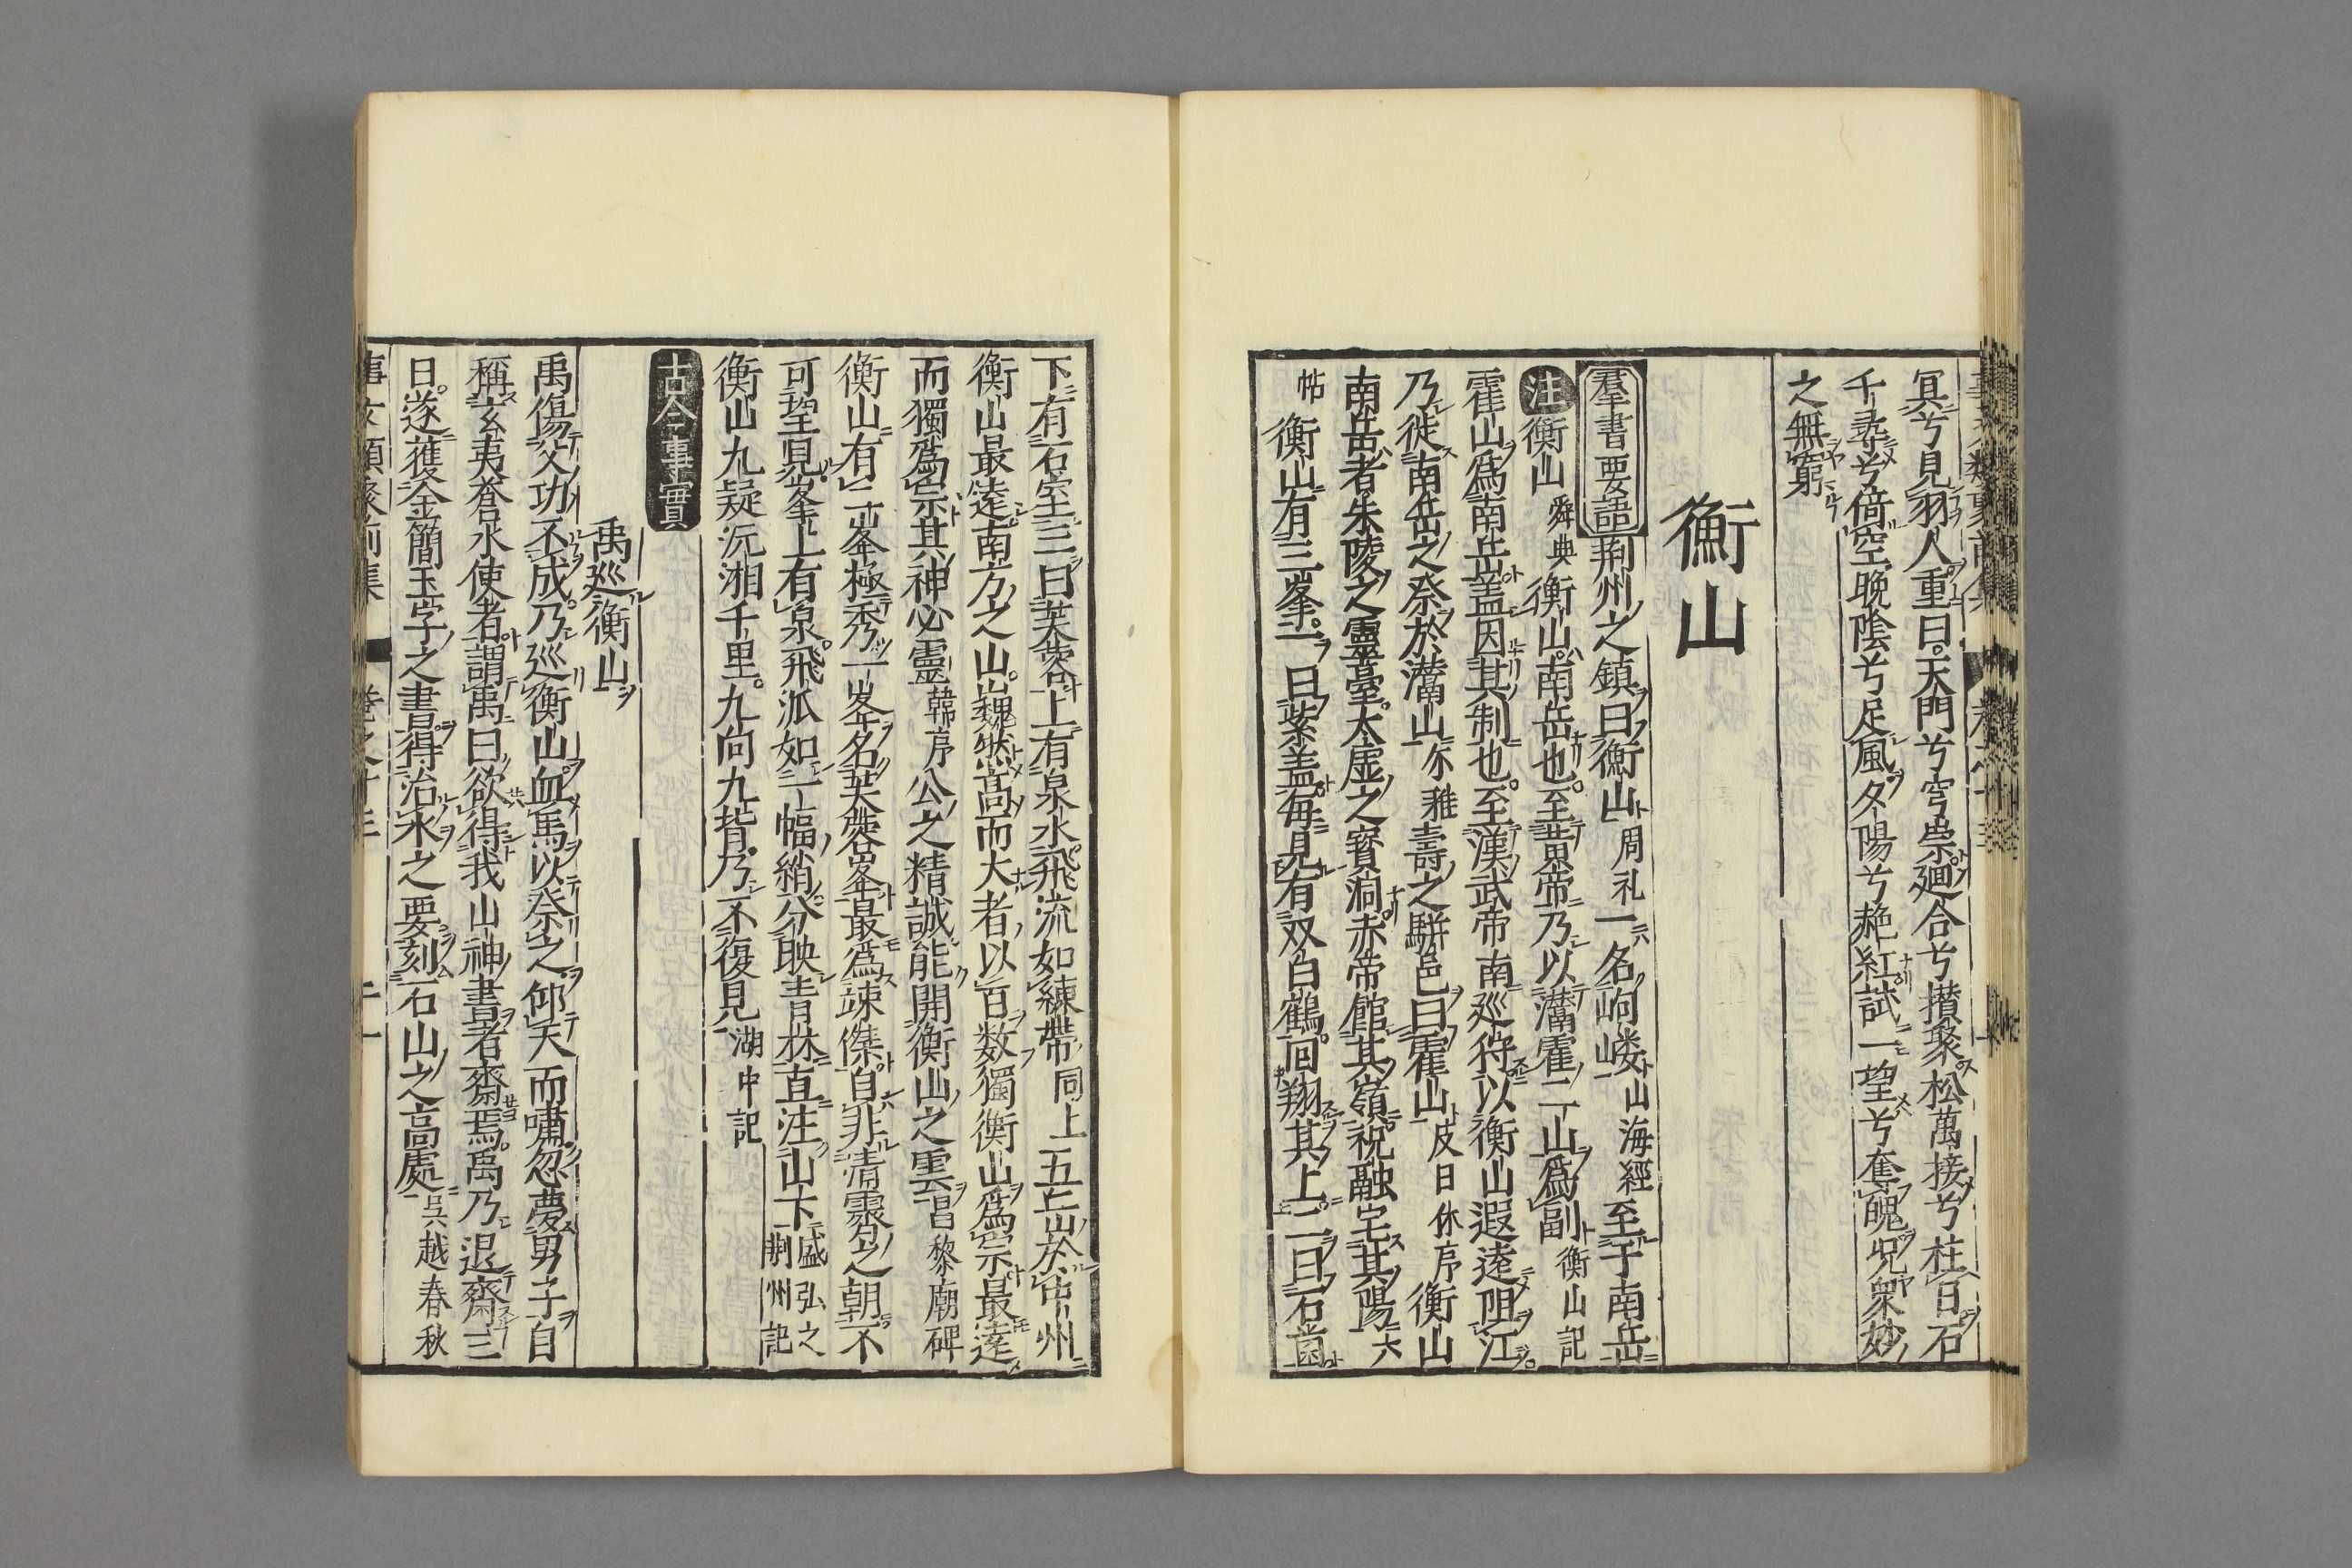 冥兮見羽人重曰天門兮穹崇廻合兮攅聚松萬接兮柱日石
千尋兮倚空晩陰兮足風夕陽兮赩紅試一望兮奪魄况衆妙
之無窮
衡山
羣書要語荆州之鎮曰衡山周礼一名岣嶁山海經至于南岳
注衡山舜典衡山南岳也至黄帝乃以灊霍二山爲副衡山記
霍山爲南岳盖因其制也至漢武帝南巡狩以衡山遐逺阻江
乃徙南岳之祭於灊山尒雅壽之駢邑曰霍山皮日休序衡山
南岳者朱陵之靈臺太虚之寳洞赤帝館其嶺祝融宅其陽六
帖衡山有三峯一曰紫盖毎見有双白鶴囘翔其上二曰石囷
下有石室三曰芙蓉上有泉水飛流如練帶同上五岳於中州
衡山最逺南方之山巍然高而大者以百数獨衡山爲宗最逺
而獨爲宗其神必靈韓序公之精誠能開衡山之雲昌黎廟碑
衡山有三峯極秀一峯名芙蓉峯最爲竦傑自非清霽之朝不
可望見峯上有泉飛泒如一幅綃分映青林直注山下盛弘之荆州記
衡山九疑沅湘千里九向九背乃不復見湖中記
古今事實
禹巡衡山
禹傷父功不成乃巡衡山血馬以祭之仰天而嘯忽夢男子自
稱玄夷蒼水使者謂禹曰欲得我山神書者齋焉禹乃退齋三
日遂獲金簡玉字之書得治水之要刻石山之高處呉越春秋
事文類聚前集 卷之十三 二十一